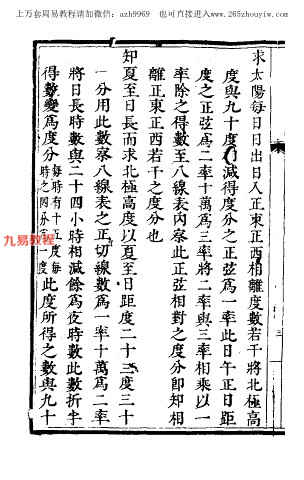 上万套周易教程请加微信：azh9969 也可直接进入www.265zhouyiw.com
求太陽每日日出日入正東正西相離度數若干將北極高
度與九十度減得度分之正弦爲一率此日午正日距
度之正弦爲二率十萬爲三率將二率與三率相乘以一
率除之得數至八線表內察此正弦相對之度分卽知相
離正東正西若干之度分也
知夏至日長而求北極高度以夏至日距二十三度三十
一分用此數察八線表之正切線數爲一率十萬爲二率
將日長時數與二十四小時相減餘爲夜時數此數折半
得數變爲度分每時有十五度每時之四分爲一度此度所得之數與九十
九易教程